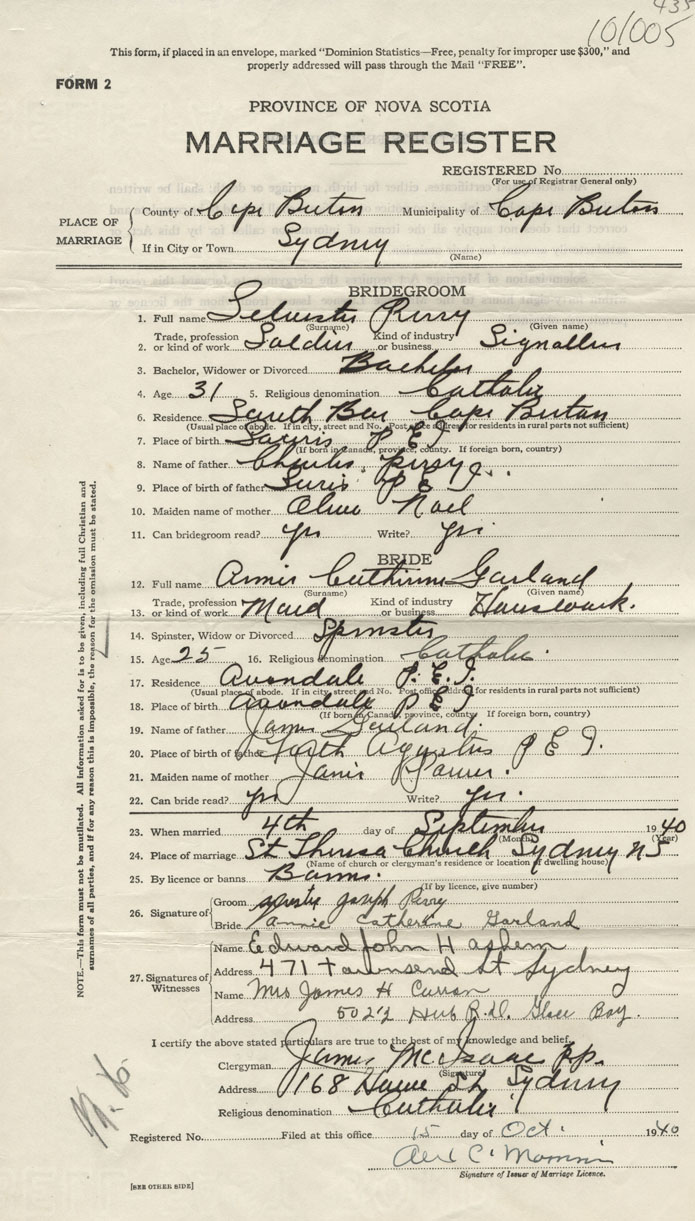 435
101005
This form, if placed in an envelope, marked “Dominion Statistics—Free, penalty for improper use $300,” and
properly addressed will pass through the Mail “FREE”.
FORM 2
PROVINCE OF NOVA SCOTIA
MARRIAGE REGISTER
REGISTERED No.
(For use of Registrar General only)
PLACE OF MARRIAGE
County of Cape Breton Municipality of Cape Breton
If in City or Town Sydney
(Name)
BRIDEGROOM
1. Full name Selvester Perry
(Surname) (Given name)
2. Trade, profession or kind of work Soldier Kind of industry or business Signaller
3. Bachelor, Widower or Divorced Bachelor
4. Age 31 5. Religious denomination Catholic
6. Residence South Bar Cape Breton
(Usual place of abode. If in city, street and No. Post office address for residents in rural parts not sufficient)
7. Place of birth Souris P E I
(If born in Canada, province, county. If foreign born, country)
8. Name of father Charles Perry
9. Place of birth of father Suris P E I
10. Maiden name of mother Noel
11. Can bridegroom read? yes Write? yes
BRIDE
12. Full name Annie Catherine Garland
(Surname) (Given name)
13. Trade, profession or kind of work Maid Kind of industry or business Housework.
14. Spinster, Widow or Divorced Spinster
15. Age 25 16. Religious denomination Catholic
17. Residence Avondale P. E. I.
(Usual place of abode. If in city, street and No. Post office address for residents in rural parts not sufficient)
18. Place of birth Avondale P E I
(If born in Canada, province, county. If foreign born, country)
19. Name of father James Garland.
20. Place of birth of father P E I.
21. Maiden name of mother Janie
22. Can bride read? yes Write? yes.
23. When married 4th day of September 1940
(Month) (Year)
24. Place of marriage St Theresa Church Sydney N S
(Name of church or clergyman's residence or location of dwelling house)
25. By licence or banns Banns.
(If by licence, give number)
26. Signature of
Groom Joseph Perry
Bride Annie Catherine Garland
27. Signatures of Witnesses
Name Edward John Hashem
Address 471 Townsend St Sydney
Name Mrs James H Curran
Address Hub Rd. Glace Bay.
I certify the above stated particulars are true to the best of my knowledge and belief.
Clergyman James McIsaac P.P.
(Signature)
Address 168 Howe St Sydney
Religious denomination Catholic
Registered No. Filed at this office 15 day of Oct. 1940
Signature of Issuer of Marriage Licence.
[SEE OTHER SIDE]
NOTE.—This form must not be mutilated. All information asked for is to be given, including full Christian and
surnames of all parties, and if for any reason this is impossible, the reason for the omission must be stated.